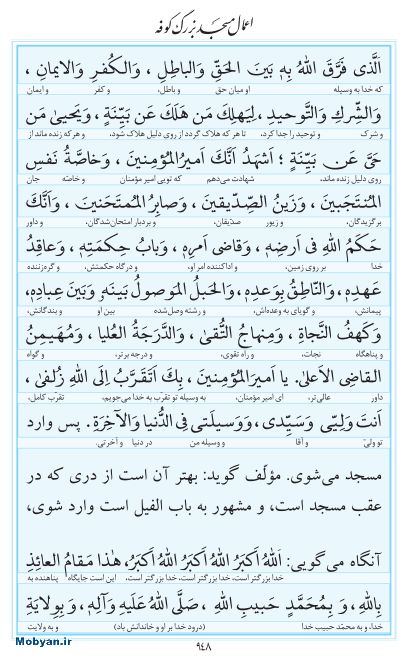 اعمال مسجد بزرگ کوفه
الَّذی فَرَّقَ اللهُ بِهِ بَینَ الحَقِّ وَالباطِلِ ، وَالکُفرِ وَالایمانِ ،
که خدا به وسیله او میان حق و باطل، و کفر و ایمان
وَالشِّرکِ وَالتَّوحیدِ، لِیَهلِکَ مَن هَلَکَ عَن بَیِّنَةٍ ، وَیَحییٰ مَن
و شرک و توحید را جدا کرد، تا هر که هلاک گردد از روی دلیل هلاک شود، و هر که زنده ماند از
حَیَّ عَن بَیِّنَةٍ ؛ اَشهَدُ اَنَّکَ اَمیرُالمُؤمِنینَ ، وَخاصَّةُ نَفسِ
روی دلیل زنده ماند. شهادت می‌دهم که تویی امیر مؤمنان و خاصّه جان
المُنتَجَبینَ ، وَزَینُ الصِّدّیقینَ ، وَصابِرُ المُمتَحَنینَ ، وَاَنَّکَ
برگزیدگان، و زیور صدّیقان، و بردبار امتحان‌شدگان، و داور
حَکَمُ اللهِ فی اَرضِهِ، وَقاضی اَمرِهِ، وَبابُ حِکمَتِهِ، وَعاقِدُ
خدا بر روی زمین، و اداکننده امر او، و درگاه حکمتش، و گره‌زننده
عَهدِهِ، وَالنّاطِقُ بِوَعدِهِ، وَالحَبلُ المَوصولُ بَینَهُ وَبَینَ عِبادِهِ،
پیمانش، و گویای به وعده‌اش، و رشته وصل‌شده بین او و بندگانش،
وَکَهفُ النَّجاةِ ، وَمِنهاجُ التُّقیٰ، وَالدَّرَجَةُ العُلیا، وَمُهَیمِنُ
و پناهگاه نجات، و راه تقوی، و درجه برتر، و گواه
القاضِی الاَعلیٰ. یا اَمیرَالمُؤمِنینَ، بِکَ اَتَقَرَّبُ اِلَی اللهِ زُلفیٰ،
داور عالی‌تر، ای امیر مؤمنان، به وسیله تو تقرب به خدا می‌جویم، تقرب کامل،
اَنتَ وَلِیّی وَسَیِّدی، وَوَسیلَتی فِی الدُّنیا وَالآخِرَةِ. پس وارد
تو ولیّ و آقا و وسیله من در دنیا و آخرتی.
مسجد می‌شوی. مؤلّف گوید: بهتر آن است از دری که در
عقب مسجد است، و مشهور به باب الفیل است وارد شوی،
آنگاه می‌گویی: اَللهُ اَکبَرُ اللهُ اَکبَرُ اللهُ اَکبَرُ، هٰذا مَقامُ العائِذِ
خدا بزرگ‌تر است، خدا بزرگ‌تر است، خدا بزرگ‌تر است، این است جایگاه پناهنده به
بِاللهِ، وَ بِمُحَمَّدٍ حَبیبِ اللهِ ، صَلَّی اللهُ عَلَیهِ وَآلِهِ، وَبِوِلایَةِ
خدا، و به محمّد حبیب خدا (درود خدا بر او و خاندانش باد) و به ولایت
۹۴۸
Mobyan.ir